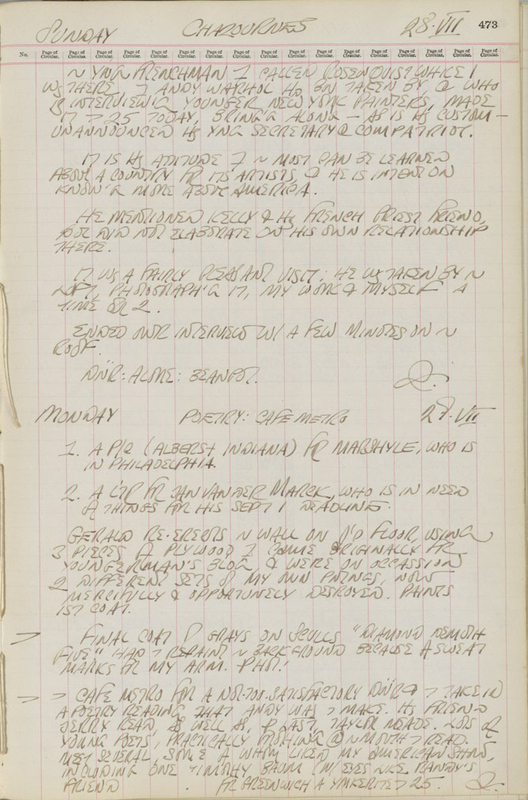 SUNDAY CHABOURNES 28·VII 473
No. Page of Circular. Page of Circular. Page of Circular. Page of Circular. Page of Circular. Page of Circular. Page of Circular. Page of Circular. Page of Circular. Page of Circular. Page of Circular. Page of Circular. Page of Circular. Page of Circular.
YNG FRENCHMAN CALLED ROSENQUIST WHILE I
WS THERE. ANDY WARHOL HD BN TAKEN BY WHO
IS INTERVIEW'G YOUNGER NEW YORK PAINTERS, MADE
IT 25 TODAY, BRING'G ALONG – AS IS HS CUSTOM –
UNANNOUNCED HS YNG SECRETARY & COMPATRIOT.
IT IS HS ATTITUDE MOST CAN BE LEARNED
ABOUT A COUNTRY FR ITS ARTISTS, & HE IS INTENT ON
KNOW'G MORE ABOUT AMERICA.
HE MENTIONED KELLY & HS FRENCH PRIEST FRIEND,
BUT DID NOT ELABORATE ON HIS OWN RELATIONSHIP
THERE.
IT WS A FAIRLY PLEASANT VISIT: HE WS TAKEN BY
LOFT, PHOTOGRAPH'G IT, MY WORK & MYSELF A
TIME OR 2.
ENDED OUR INTERVIEW W/ A FEW MINUTES ON
ROOF.
DNR: ALONE: BEANPOT.
MONDAY POETRY: CAFE METRO 29·VII
1. A P/C (ALBERS + INDIANA) FR MARSHYLE, WHO IS
IN PHILADELPHIA.
2. A LTR FR JAN VAN DER MARCK, WHO IS IN NEED
OF THINGS FOR HIS SEPT 1 DEADLINE.
GERALD RE-ERECTS WALL ON FLOOR, USING
3 PIECES OF PLYWOOD COME ORIGINALLY FR
YOUNGERMAN'S BLDG & WERE ON OCCASION
2 DIFFERENT SETS OF MY OWN PNTINGS, NOW
MERCIFULLY & OPPORTUNELY DESTROYED. PAINTS
1ST COAT.
FINAL COAT GRAYS ON SCULLS "DIAMOND DEMUTH
FIVE" HAD REPAINT BACKGROUND BECAUSE OF SWEAT
MARKS FR MY ARM.
CAFE METRO FOR A NOT-TOO-SATISFACTORY DNR & TAKE IN
A POETRY READING THAT ANDY WAS MAKE. HS FRIEND
GERRY READ, AS WELL AS, LAST, TAYLOR MEADE. LOTS OF
YOUNG POETS, PRACTICALLY READ.
MET SEVERAL, SOME OF WHOM LIKED MY AMERICAN SHOW,
INCLUDING ONE TIMOTHY BAUM (W/ EYES LIKE
FRIEND FR GREENWICH 25.